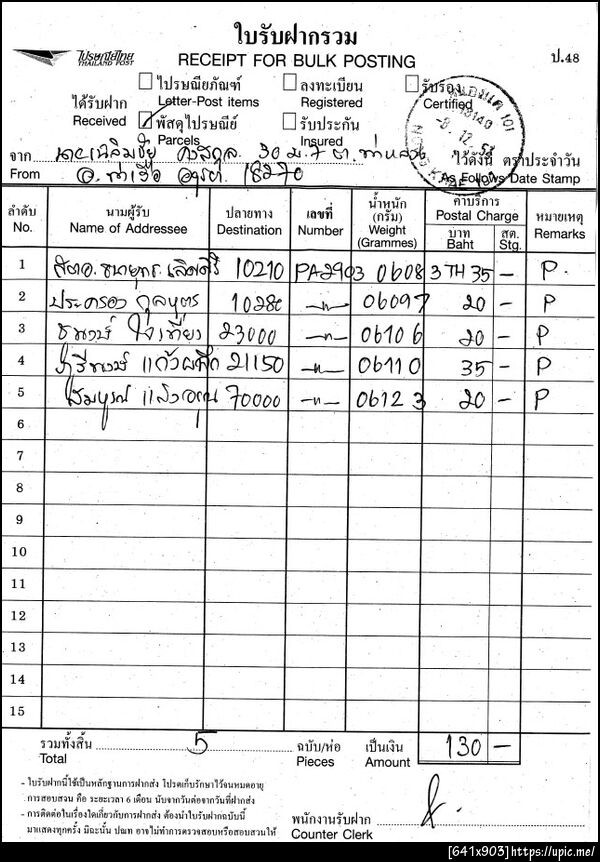 ใบรับฝากรวม
ไปรษณีย์ไทย
THAILAND POST
RECEIPT FOR BULK POSTING
ป.48
ได้รับฝาก
Received
ไปรษณียภัณฑ์
Letter-Post items
ลงทะเบียน
Registered
รับรอง
Certified
พัสดุไปรษณีย์
Parcels
รับประกัน
Insured
จาก 30 ม.7 ต. ไว้ดังนี้ ตราประจำวัน
From อ. 18270 As Follows Date Stamp
ลำดับ นามผู้รับ ปลายทาง เลขที่ น้ำหนัก (กรัม) ค่าบริการ หมายเหตุ
No. Name of Addressee Destination Number Weight (Grammes) Postal Charge Remarks
บาท สต.
Baht Stg.
1 10210 PA2903 0608 3 TH 35 - P.
2 ประครอง 10280 -"- 06097 20 - P
3 23000 -"- 06106 20 - P
4 21150 -"- 06110 35 - P
5 สมบูรณ์ 70000 -"- 06123 20 - P
6
7
8
9
10
11
12
13
14
15
รวมทั้งสิ้น 5 ฉบับ/ห่อ เป็นเงิน 130 -
Total Pieces Amount
- ใบรับฝากนี้ใช้เป็นหลักฐานการฝากส่ง โปรดเก็บรักษาไว้จนหมดอายุ
การสอบสวน คือ ระยะเวลา 6 เดือน นับจากวันต่อจากวันที่ฝากส่ง
- การติดต่อในเรื่องใดเกี่ยวกับการฝากส่ง ต้องนำใบรับฝากฉบับนี้
มาแสดงทุกครั้ง มิฉะนั้น ปณท อาจไม่ทำการตรวจสอบหรือสอบสวนให้
พนักงานรับฝาก
Counter Clerk
[641x903]https://upic.me/